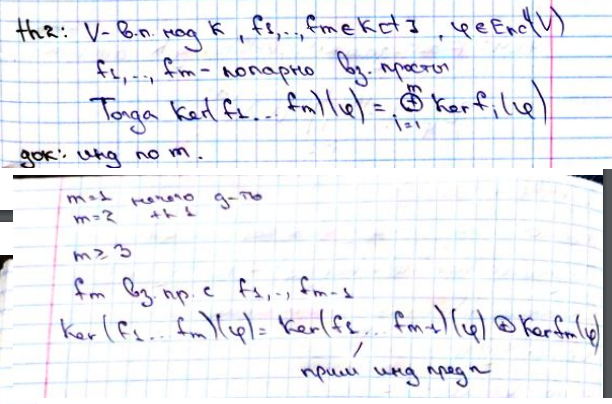 th2: V - в.п. над K, f1,..,fm ∈ K[t], φ ∈ End(V)
f1,..,fm - попарно вз. просты
Тогда Ker(f1...fm)(φ) = ⊕ Ker fi(φ)
m
i=1
док: инд по m.
m=1 нечего д-ть
m=2 th 1
m≥3
fm вз. пр. с f1,..,fm-1
Ker(f1...fm)(φ) = Ker(f1...fm-1)(φ) ⊕ Ker fm(φ)
прим инд предп